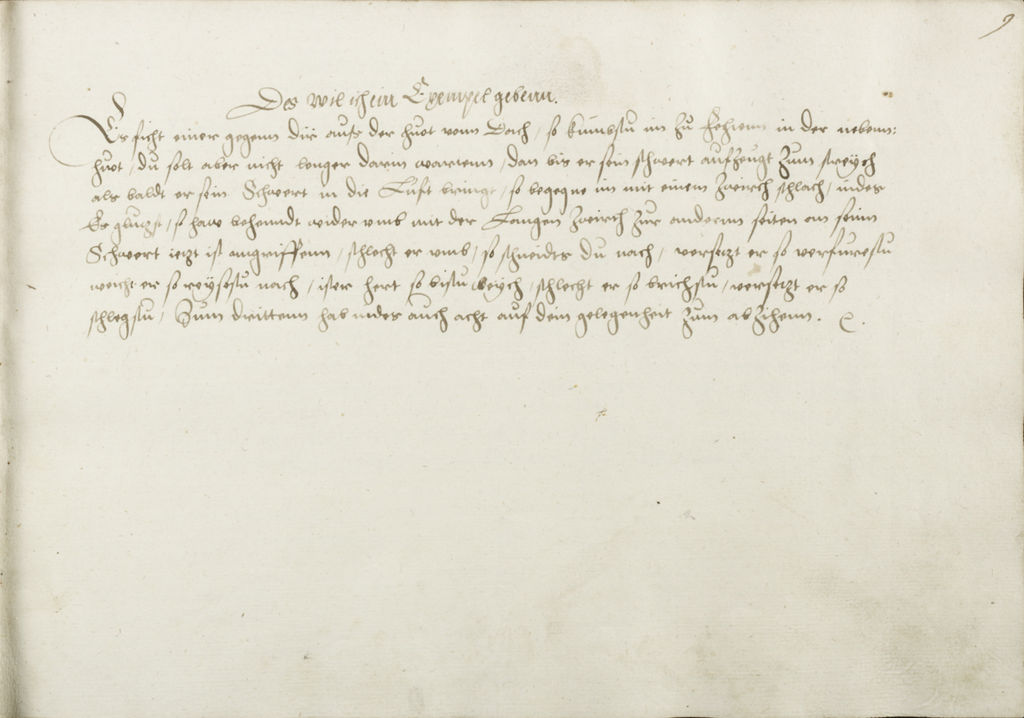 9
Des wil ich ein Exempel gebenn.
Es ficht einer gegenn dir auss der huot vom Dach, so kumbstu im zu in der nebenn:
huot, du solt aber nicht lenger darin wartenn, dan bis er sein schwert auffzeugt zum streych
als baldt er sein Schwert in die Lufft bringt, so begegne im mit einem zwirch schlach, indes
Es gluzst, so haw behenndt wider umb mit der Langen zwirch zur andernn seiten an seinn
Schwert ietzt ist angriffenn, schlecht er umb, so schneidts du nach, versetzt er so verfurestu
weicht er so reysestu nach, ister hert so bistu weych, schlecht er so brichstu, versetzt er so
schlegstu, Zum drittenn hab indes auch acht auf dein gelegenheit zum abzihenn.